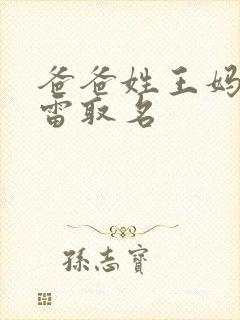 爸爸姓王妈
雷取名
孫志寶